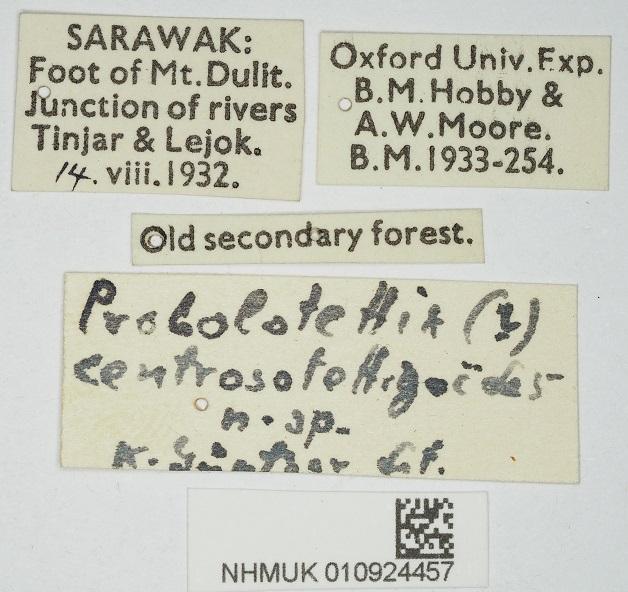 SARAWAK:
Foot of Mt. Dulit.
Junction of rivers
Tinjar & Lejok.
14. viii. 1932.
Oxford Univ. Exp.
B.M. Hobby &
A.W. Moore.
B.M. 1933-254.
Old secondary forest.
Probolotettix (?)
centrosotettigoïdes
n. sp.
K. Günther det.
NHMUK 010924457